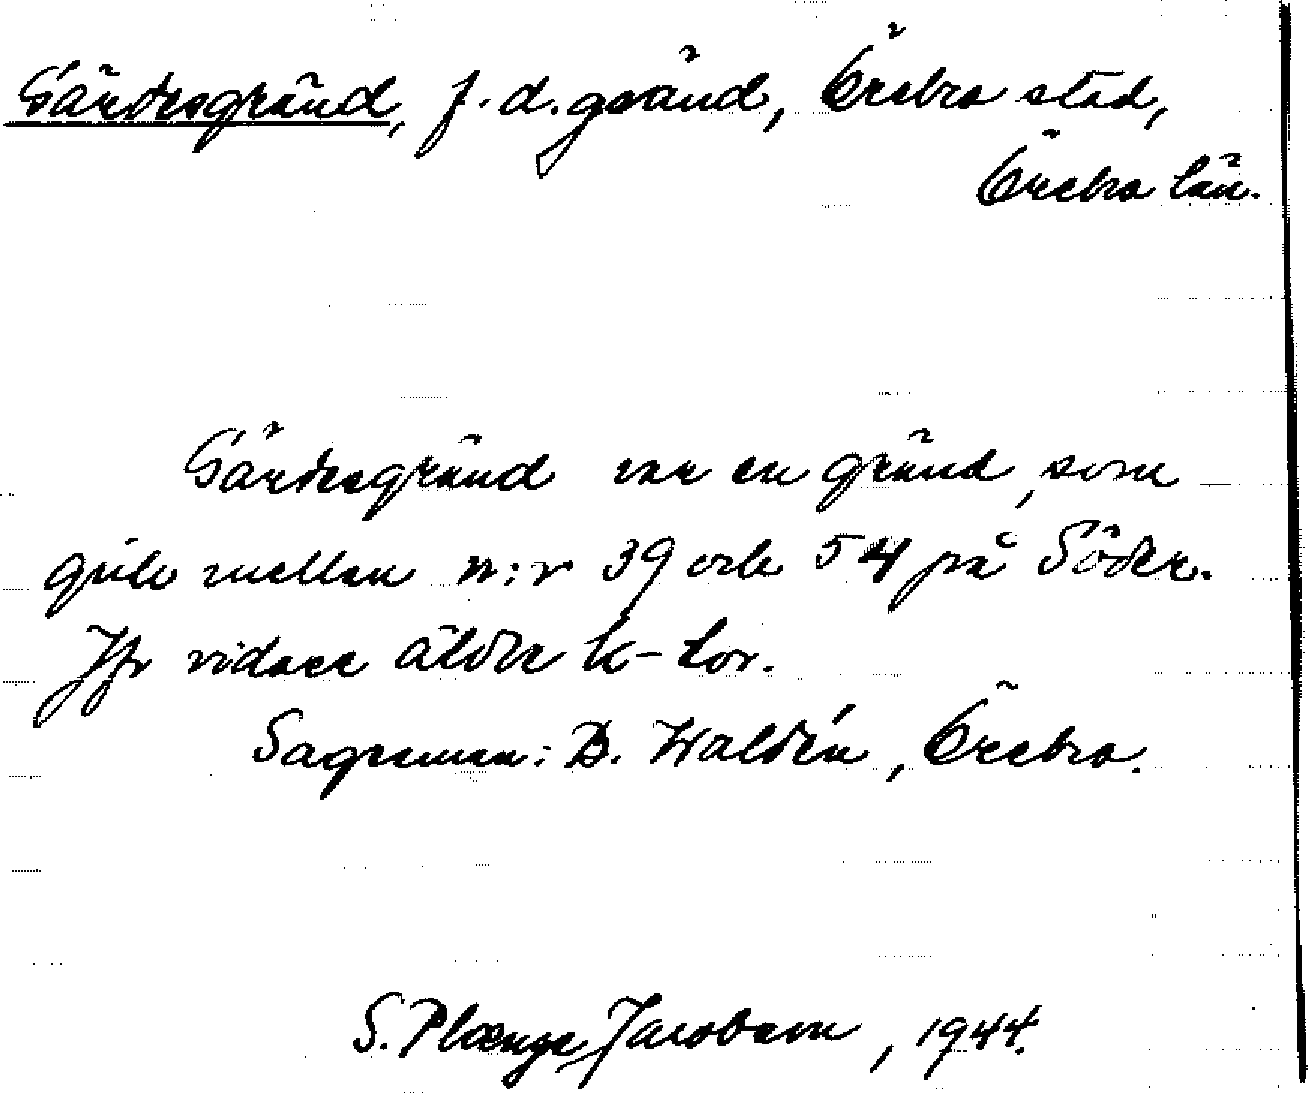 Gärdesgränd, f.d. gränd, Örebro stad,
Örebro län.
Gärdesgränd var en gränd, som
gick mellan n:r 39 och 54 på Söder.
Jfr vidare äldre k-tor.
Sagesman: B. Waldén, Örebro.
S. Plænge Jacobson, 1944.